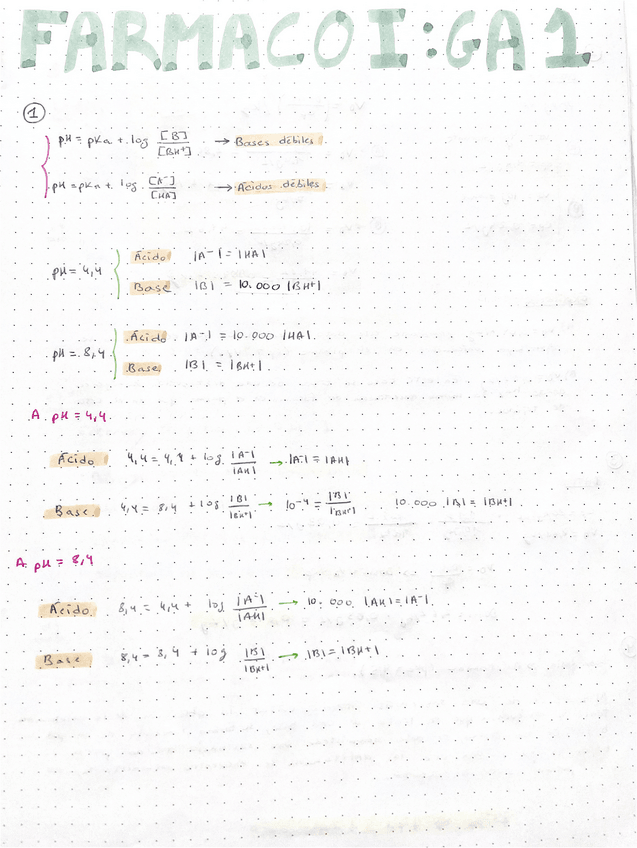 FARMACO I: GA 1
1
pH = pKa + log [B] / [BH+] → Bases débiles.
pH = pKa + log [A-] / [HA] → Ácidos débiles
pH = 4,4
Ácido |A-| = |HA|
Base |B| = 10.000 |BH+|
pH = 8,4
Ácido |A-| = 10.000 |HA|.
Base |B| = |BH+|.
A pH = 4,4.
Ácido 4,4 = 4,4 + log |A-| / |AH| → |A-| = |AH|
Base 4,4 = 8,4 + log |B| / |BH+| → 10-4 = |B| / |BH+| 10.000 |B| = |BH+|
A pH = 8,4
Ácido 8,4 = 4,4 + log |A-| / |AH| → 10.000 |AH| = |A-|.
Base 8,4 = 8,4 + log |B| / |BH+| → |B| = |BH+|.